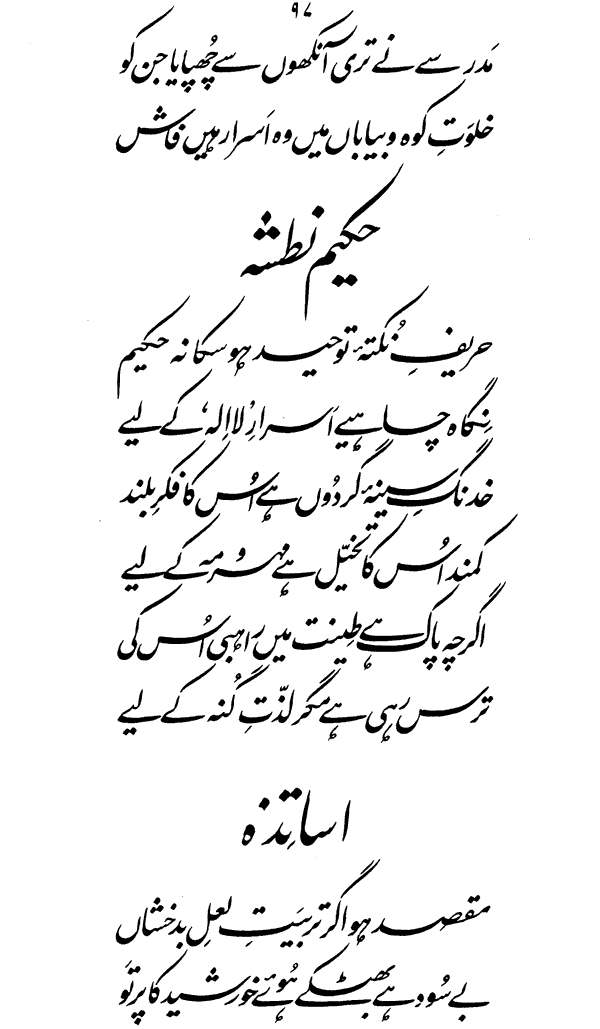 ۹۷
مَدرسے نے تری آنکھوں سے چُھپایا جن کو
خلوَتِ کوہ و بیاباں میں وہ اَسرار ہیں فاش
حکیم نطشہ
حریفِ نُکتۂ توحید ہو سکا نہ حکیم
نِگاہ چاہیے اَسرارِ ’لا اِلہ‘ کے لیے
خدنگِ سینۂ گردُوں ہے اُس کا فکرِ بلند
کمند اُس کا تخیّل ہے مہر و مہ کے لیے
اگرچہ پاک ہے طِینت میں راہبی اُس کی
ترس رہی ہے مگر لذّتِ گُنہ کے لیے
اساتِذہ
مقصد ہو اگر تربیَتِ لعلِ بدخشاں
بے سُود ہے بھٹکے ہُوئے خورشید کا پرتَو